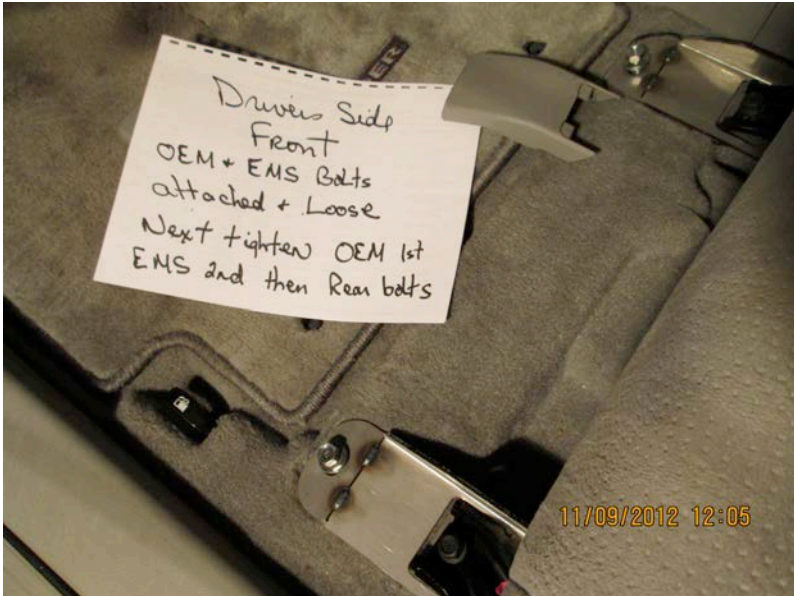 ER
Drivers Side
Front
OEM + EMS Bolts
attached + Loose
Next tighten OEM 1st
EMS 2nd then Rear bolts
11/09/2012 12:05